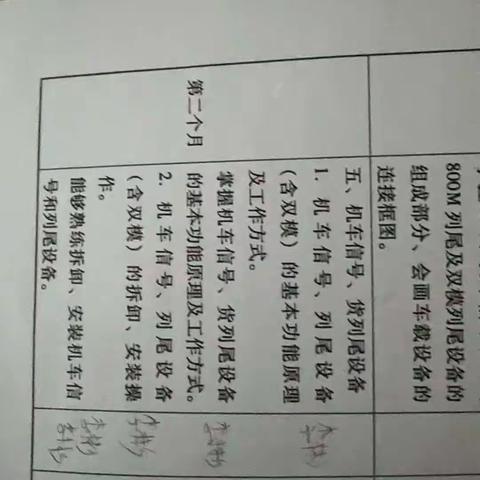 800M 列尾及双模列尾设备的
组成部分、会画车载设备的
连接框图。
第二个月
五、机车信号、货列尾设备
1. 机车信号、列尾设备
（含双模）的基本功能原理
及工作方式。
掌握机车信号、货列尾设备
的基本功能原理及工作方式。
2. 机车信号、列尾设备
（含双模）的拆卸、安装操
作。
能够熟练拆卸、安装机车信
号和列尾设备。